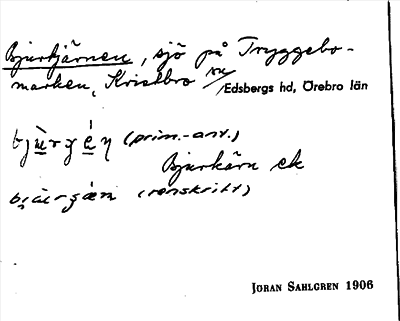 Bjurtjärnen, sjö på Tryggebo-
marken, Kristbro sn
Edsbergs hd, Örebro län
(prim.-ant.)
Bjurkärn ek
(renskrift)
JÖRAN SAHLGREN 1906